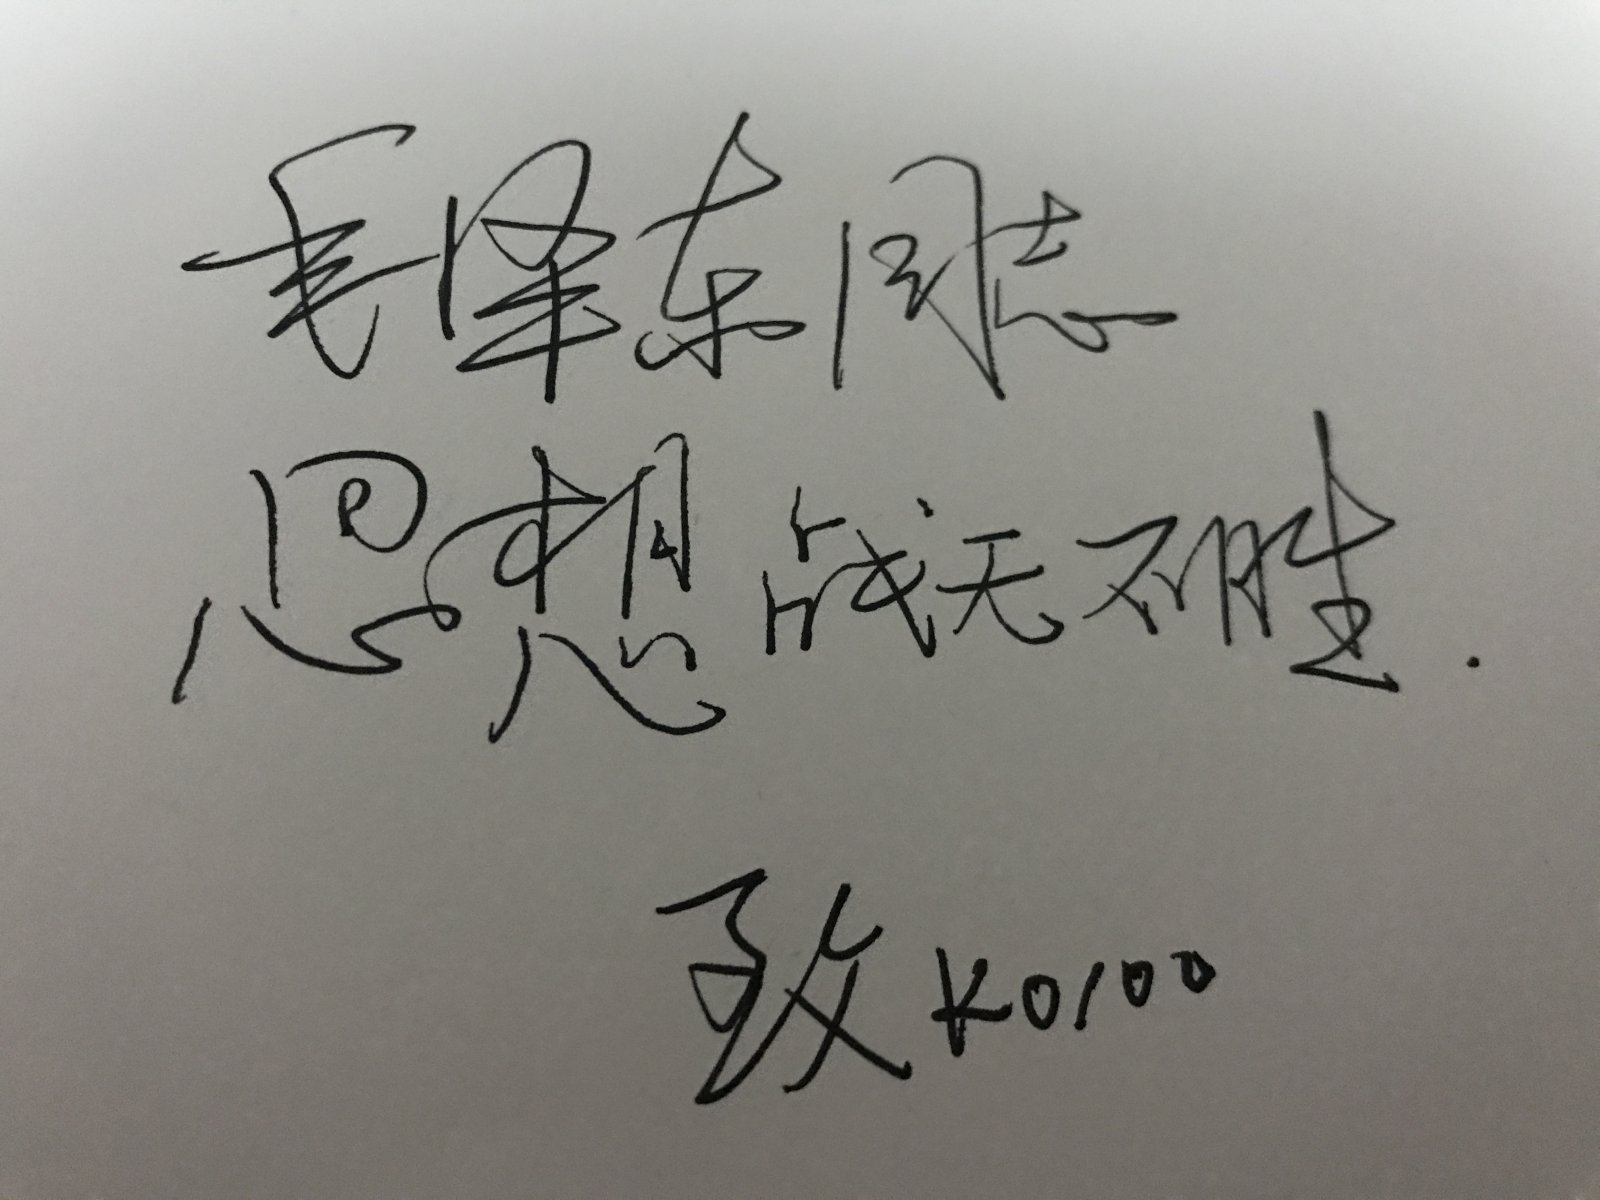 毛泽东同志
思想战无不胜.
致 K0100